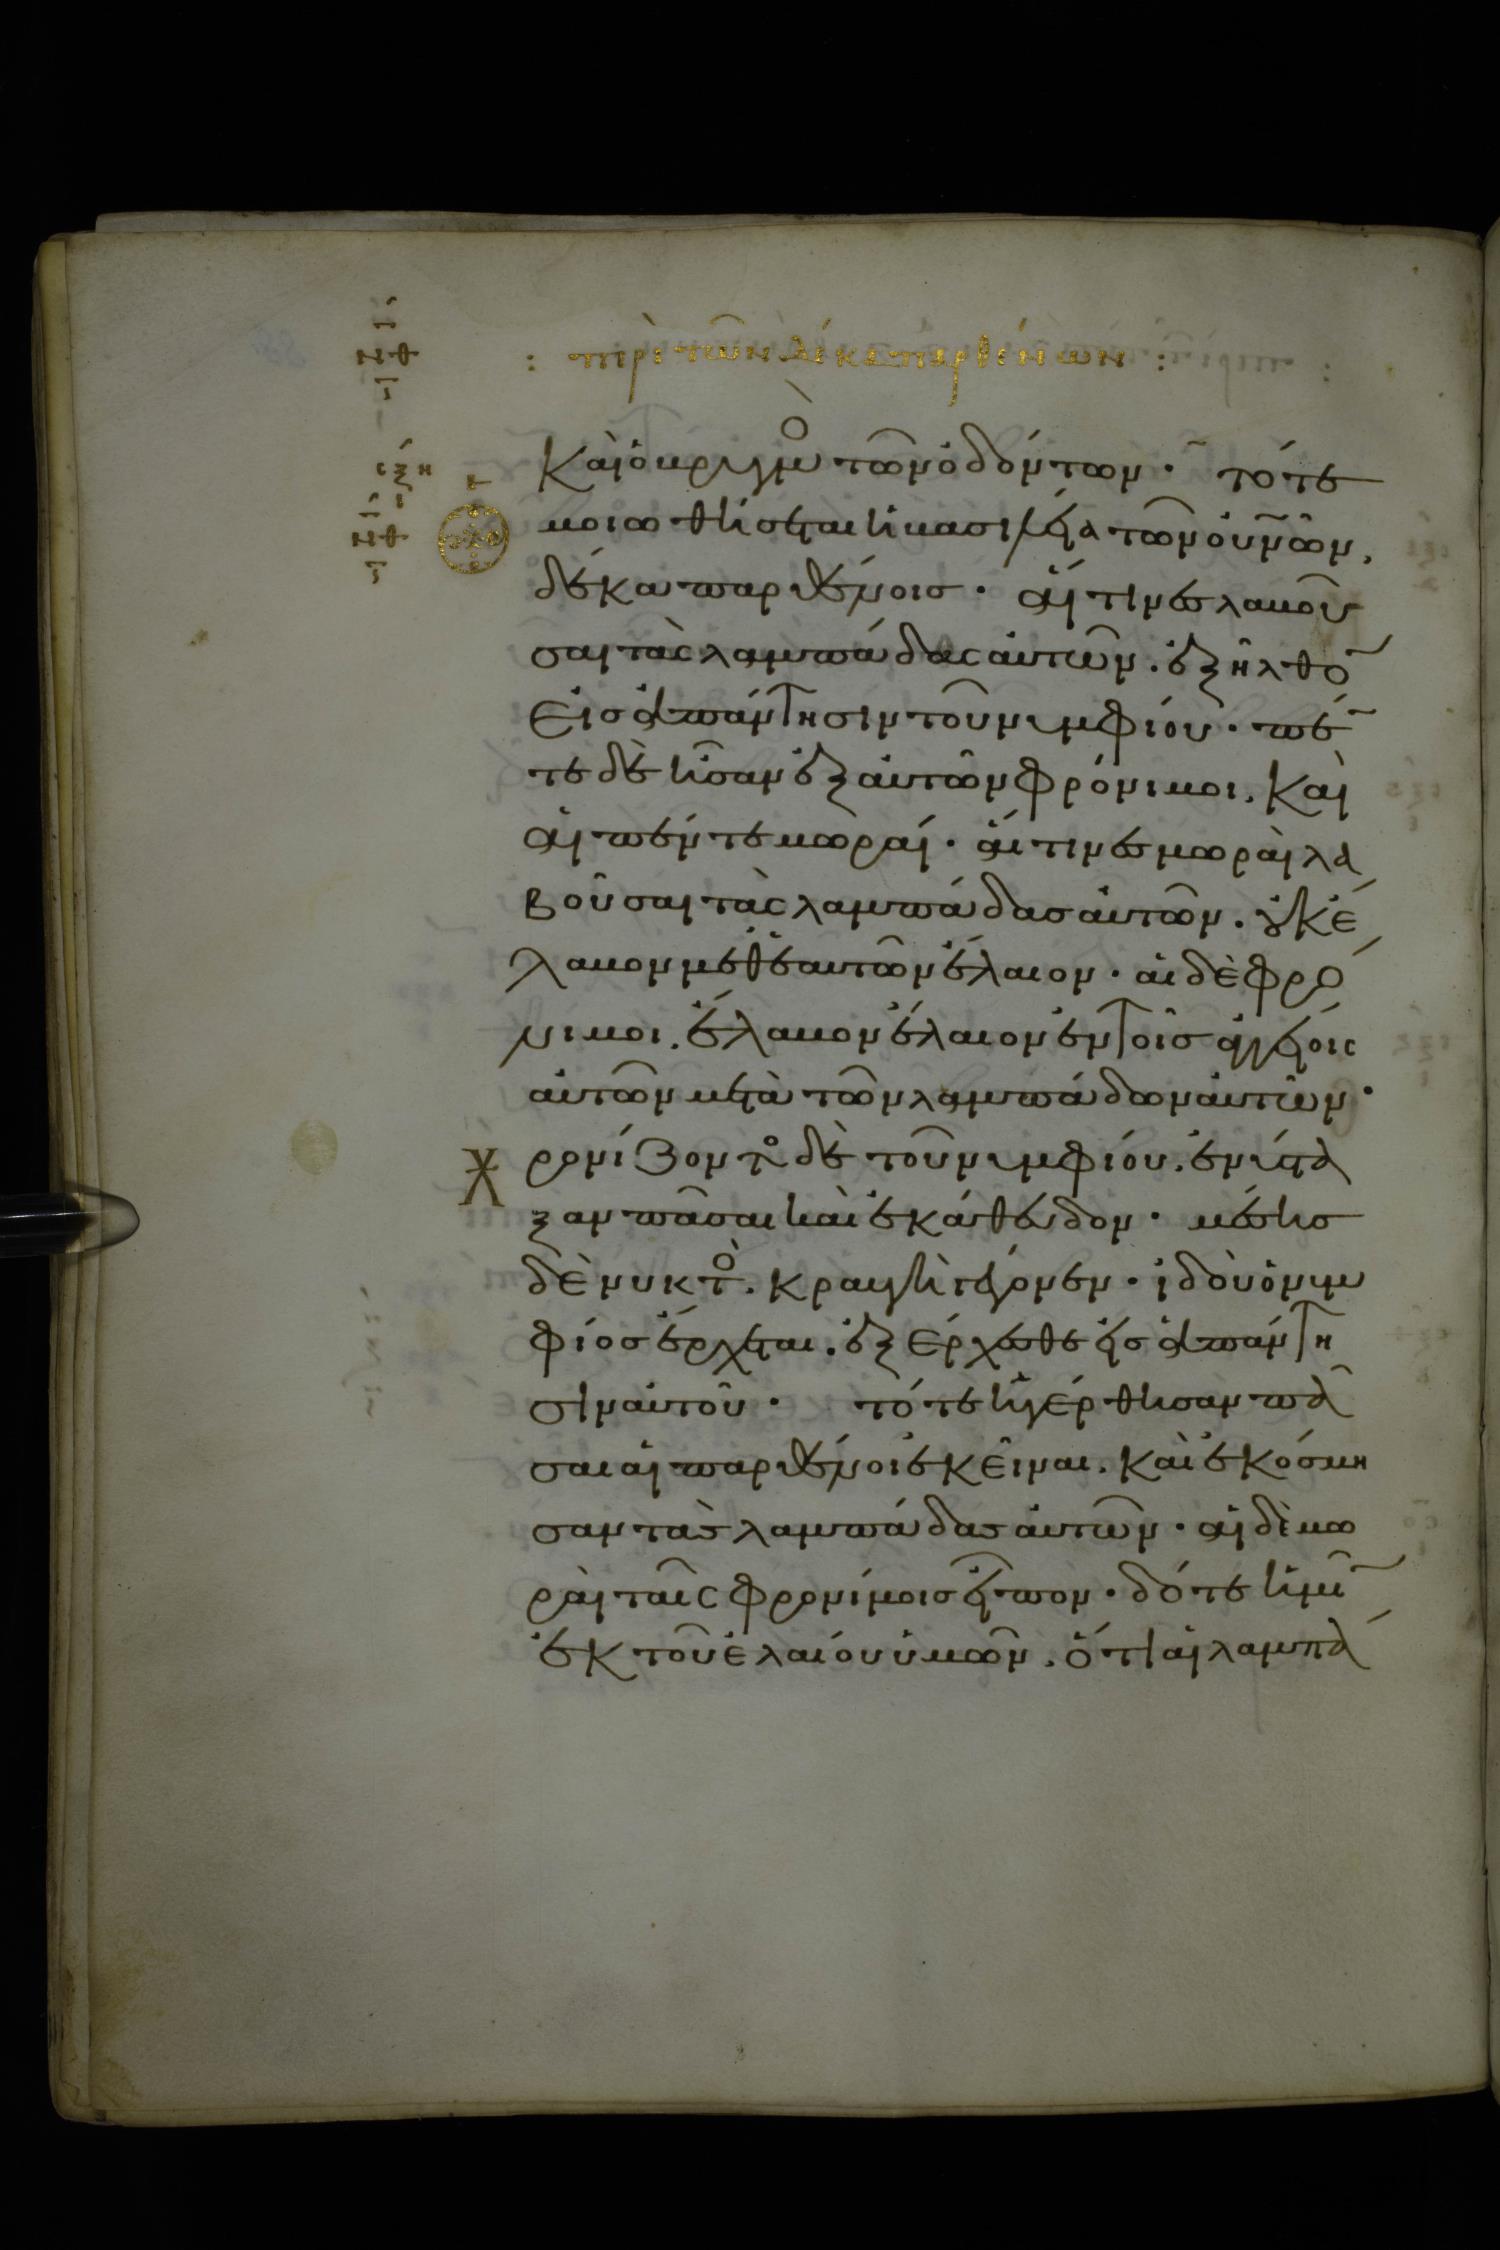 : περὶ τῶν δέκα παρθένων :
καὶ ὁ βρυγμὸ τῶν ὀδόντων · τότε
μοιωθήσεται ἡ βασιλεία τῶν οὐνῶν,
δέκα παρθένοις · αἵτινες λαβοῦ
σαι τὰς λαμπάδας αὐτῶν . ἐξῆλθο
εἰς ἀπάντησιν τοῦ νυμφίου · πέ
τε δὲ ἦσαν ἐξ αὐτῶν φρόνιμοι . καὶ
αἱ πέντε μωραί · αἵτινες μωραὶ λα
βοῦσαι τὰς λαμπάδας αὐτῶν . οὐκ ἔ
λαβον μεθ ἑαυτῶν ἔλαιον · αἱ δὲ φρό
νιμοι . ἔλαβον ἔλαιον ἐν τοῖς ἀγγείοις
αὐτῶν μετὰ τῶν λαμπάδων αὐτῶν ·
Χ ρονίζοντο δὲ τοῦ νυμφίου . ἐνύστα
ξαν πᾶσαι καὶ ἐκάθευδον · μέσης
δὲ νυκτὸ . κραυγὴ γέγονεν · ἰδοὺ ὁ νυμ
φίος ἔρχεται . ἐξέρχεσθε εἰς ἀπάντη
σιν αὐτοῦ · τότε ἠγέρθησαν πᾶ
σαι αἱ παρθένοι ἐκεῖναι . καὶ ἐκόσμη
σαν τὰς λαμπάδας αὐτῶν · αἱ δὲ μω
ραὶ ταῖς φρονίμοις εἶπον · δότε ἡμῖ
ἐκ τοῦ ἐλαίου ὑμῶν . ὅτι αἱ λαμπά